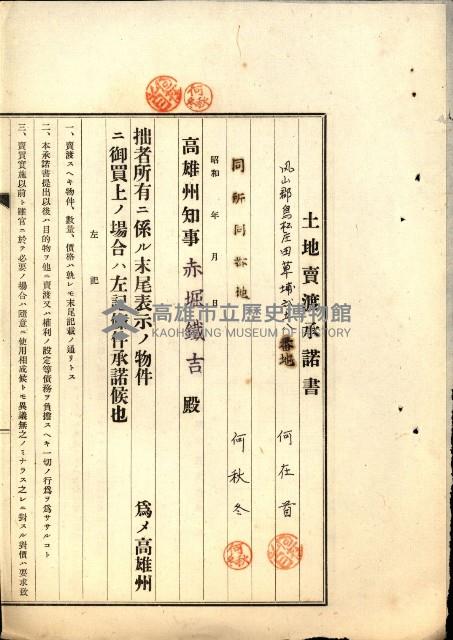 土地賣渡承諾書
鳳山郡鳥松庄田草埔 番地
何在首
同所同番地
何秋冬
昭和 年 月 日
高雄州知事 赤堀鐵吉 殿
拙者所有ニ係ル末尾表示ノ物件 為メ高雄州
ニ御買上ノ場合ハ左記條件承諾候也
左記
一、賣渡スヘキ物件、數量、價格ハ孰レモ末尾記載ノ通リトス
二、本承諾書提出以後ハ目的物ヲ他ニ賣渡又ハ權利ノ設定等債務ヲ負擔スヘキ一切ノ行爲ヲ爲ササルコト
三、賣買實施以前ト雖官ニ於テ必要ノ場合ハ隨意ニ使用相成候トモ異議無之ノミナラス之レニ對スル對價ハ要求致
高雄市立歷史博物館
KAOHSIUNG MUSEUM OF HISTORY